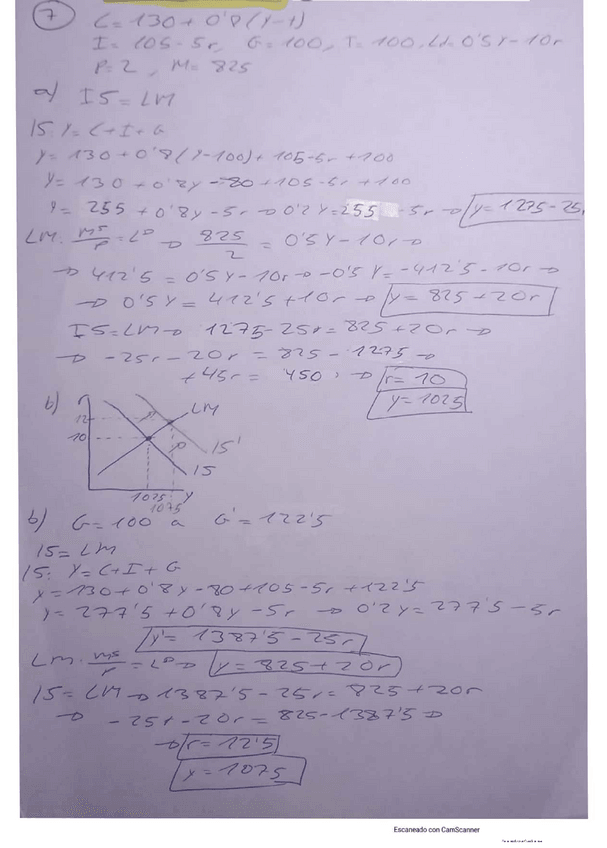 7 C = 130 + 0'8 (Y-T)
I = 105 - 5r, G = 100, T = 100, Ld = 0'5Y - 10r
P = 2, M = 825
a) IS = LM
IS: Y = C + I + G
Y = 130 + 0'8 (Y-100) + 105 - 5r + 100
Y = 130 + 0'8Y - 80 + 105 - 5r + 100
Y = 255 + 0'8Y - 5r → 0'2Y = 255 - 5r → Y = 1275 - 25
LM: Ms/P = LD → 825/2 = 0'5Y - 10r →
→ 412'5 = 0'5Y - 10r → -0'5Y = -412'5 - 10r →
→ 0'5Y = 412'5 + 10r → Y = 825 + 20r
IS = LM → 1275 - 25r = 825 + 20r →
→ -25r - 20r = 825 - 1275 →
+45r = 450 → r = 10
Y = 1025
b) r
12
10
LM
IS'
IS
1025 Y
1075
b) G = 100 a G' = 122'5
IS = LM
IS: Y = C + I + G
Y = 130 + 0'8Y - 80 + 105 - 5r + 122'5
Y = 277'5 + 0'8Y - 5r → 0'2Y = 277'5 - 5r
Y = 1387'5 - 25r
LM: Ms/P = LD → Y = 825 + 20r
IS = LM → 1387'5 - 25r = 825 + 20r
→ -25r - 20r = 825 - 1387'5 →
→ r = 12'5
Y = 1075
Escaneado con CamScanner